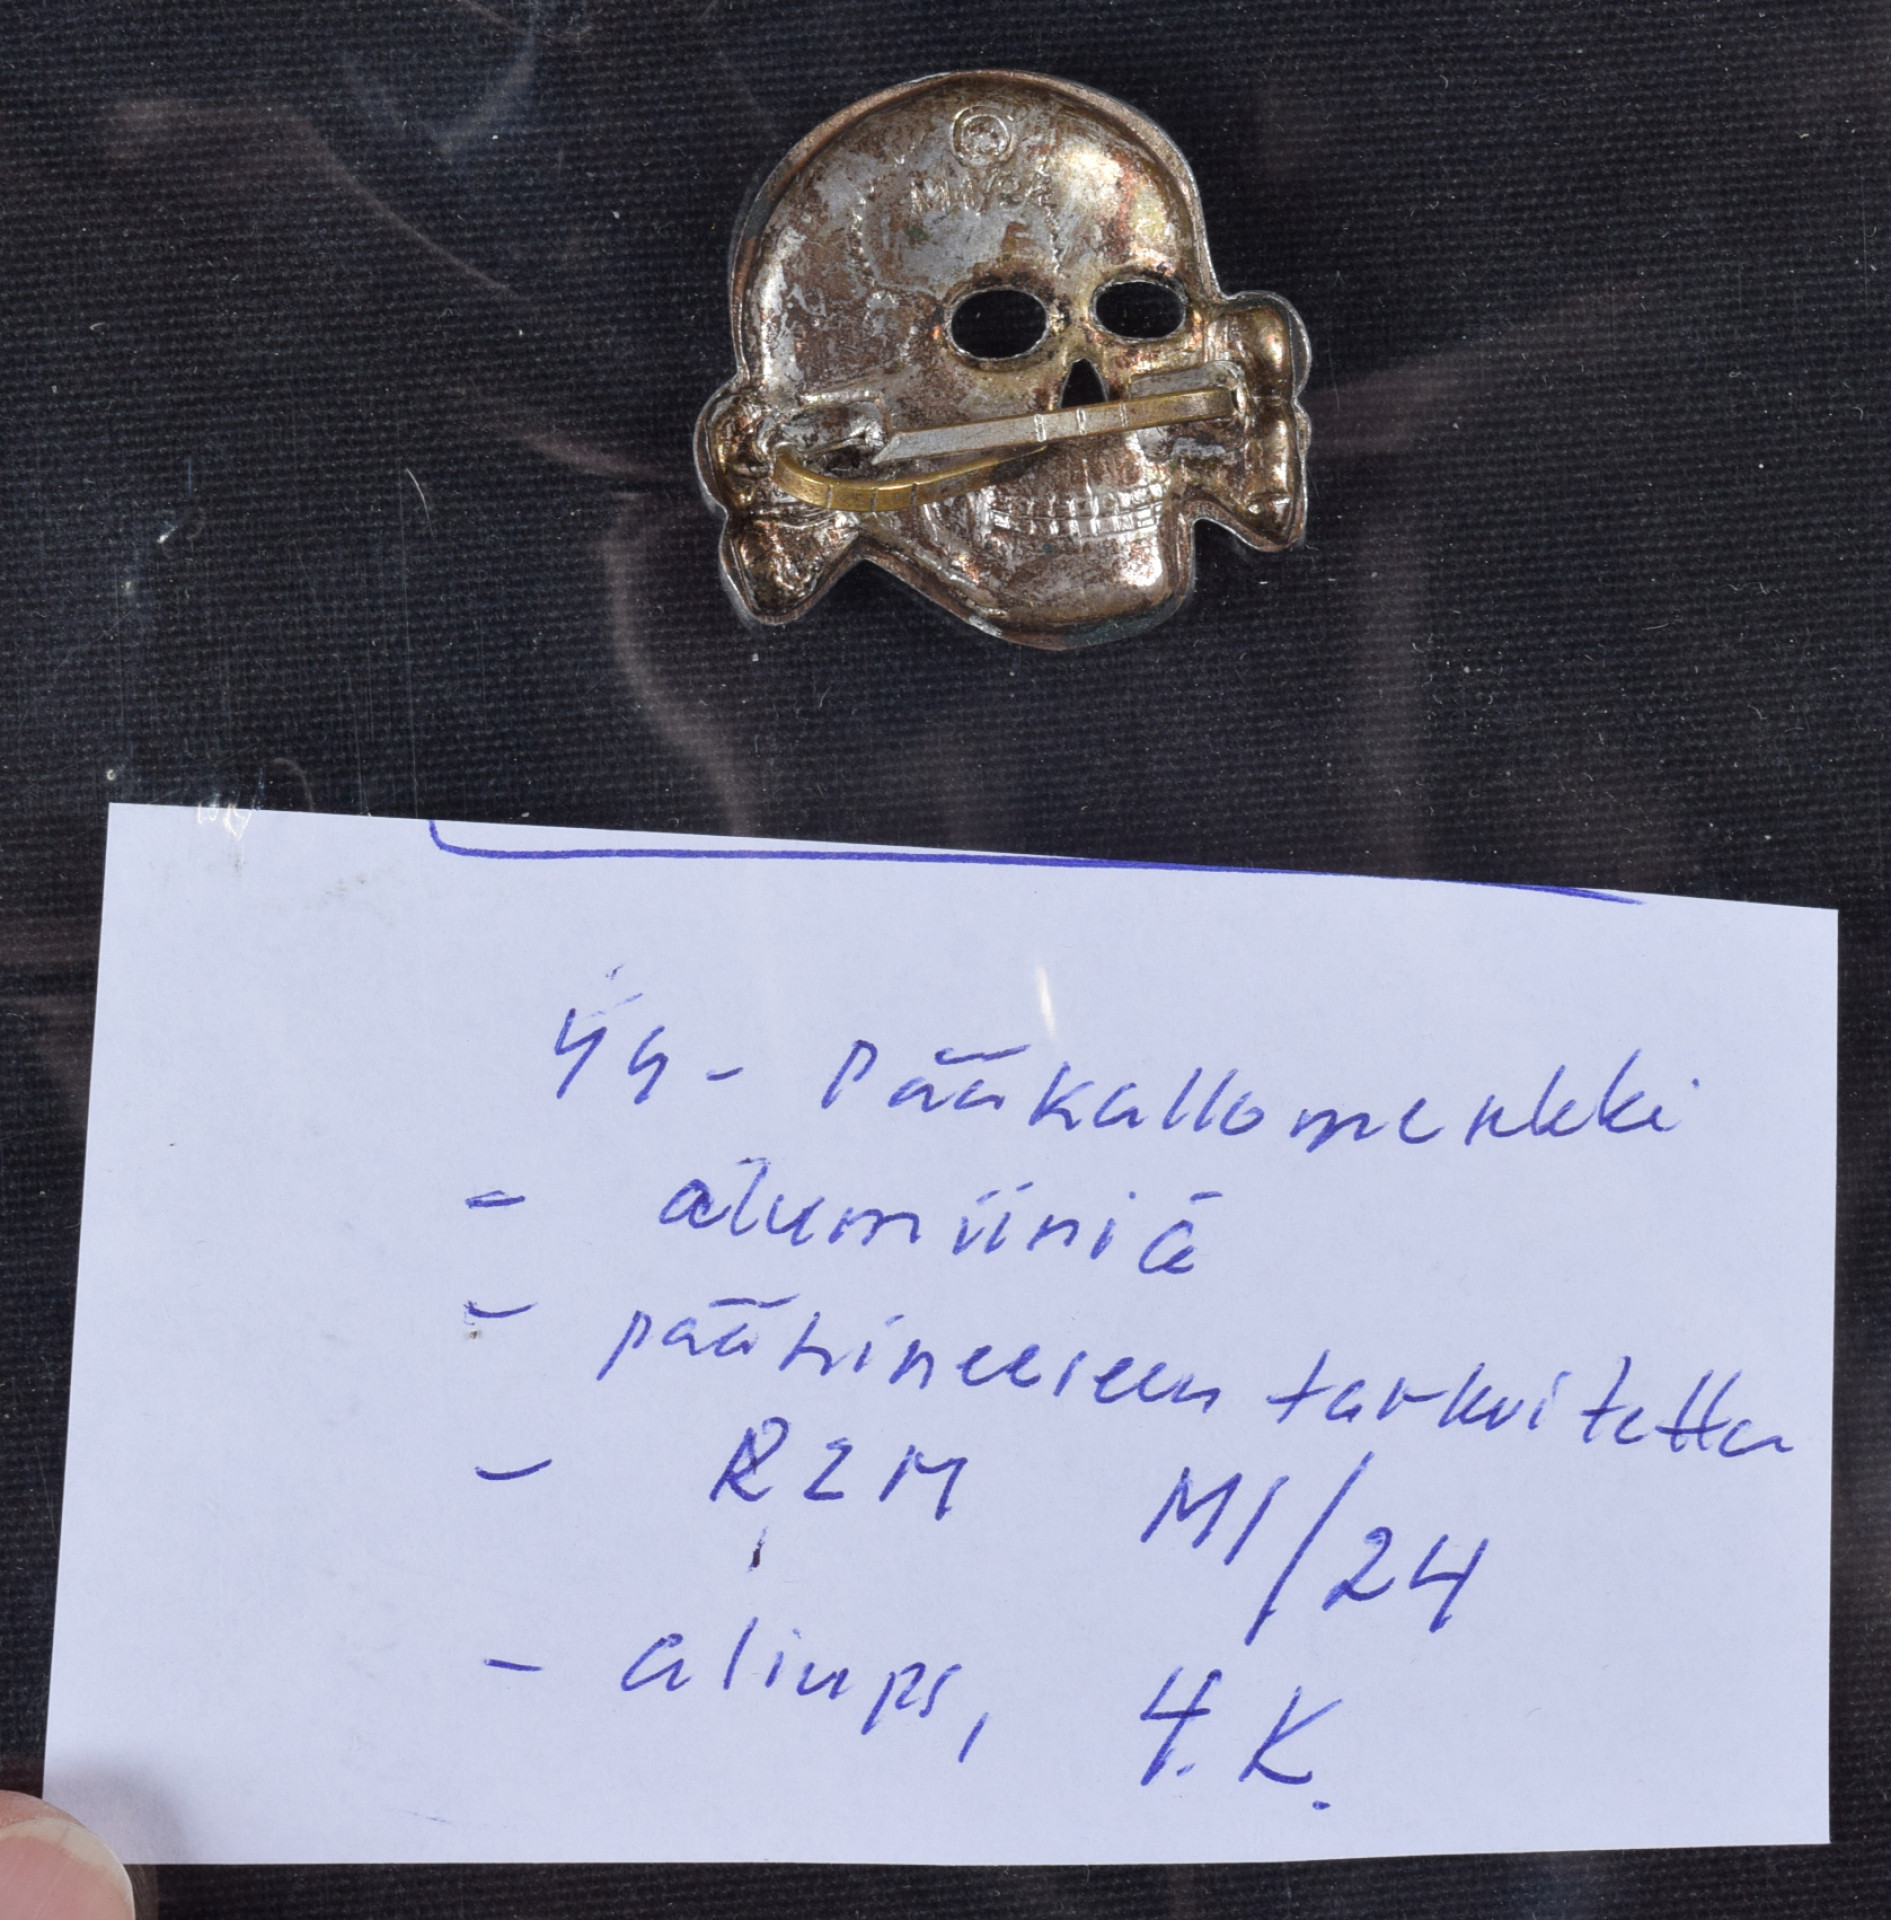 M1/24
ᛋᛋ - Pääkallomerkki
- alumiiniä
- päähineeseen tarkoitettu
- RZM M1/24
- aliups, 4.K.